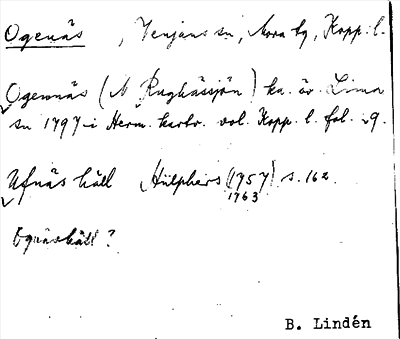 Ogenäs, Venjans sn, Mora tg, Kopp. l.
Ogennäs (N Rughässjön) ka. äv. Lima
sn 1797 i Herm. kartv. vol. Kopp. l. fol. 29.
Ufnäs häll Hülphers (1757) s. 162.
1763
Ognäshäll?
B. Lindén